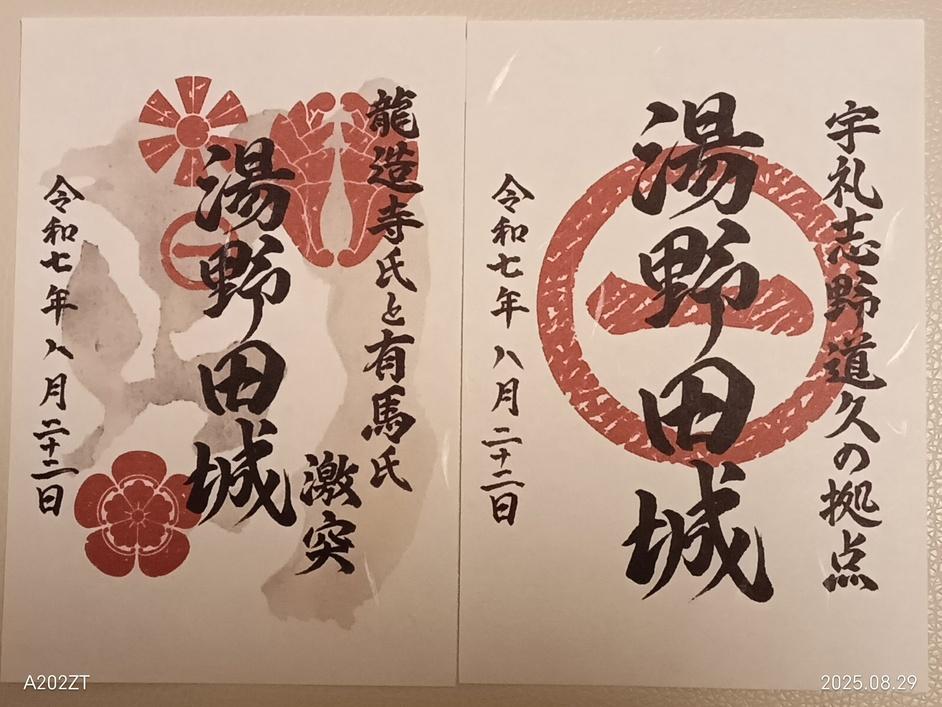 龍造寺氏と有馬氏
激突
湯野田城
令和七年 八月二十二日
宇礼志野道久の拠点
湯野田城
令和七年 八月二十二日
A202ZT
2025.08.29